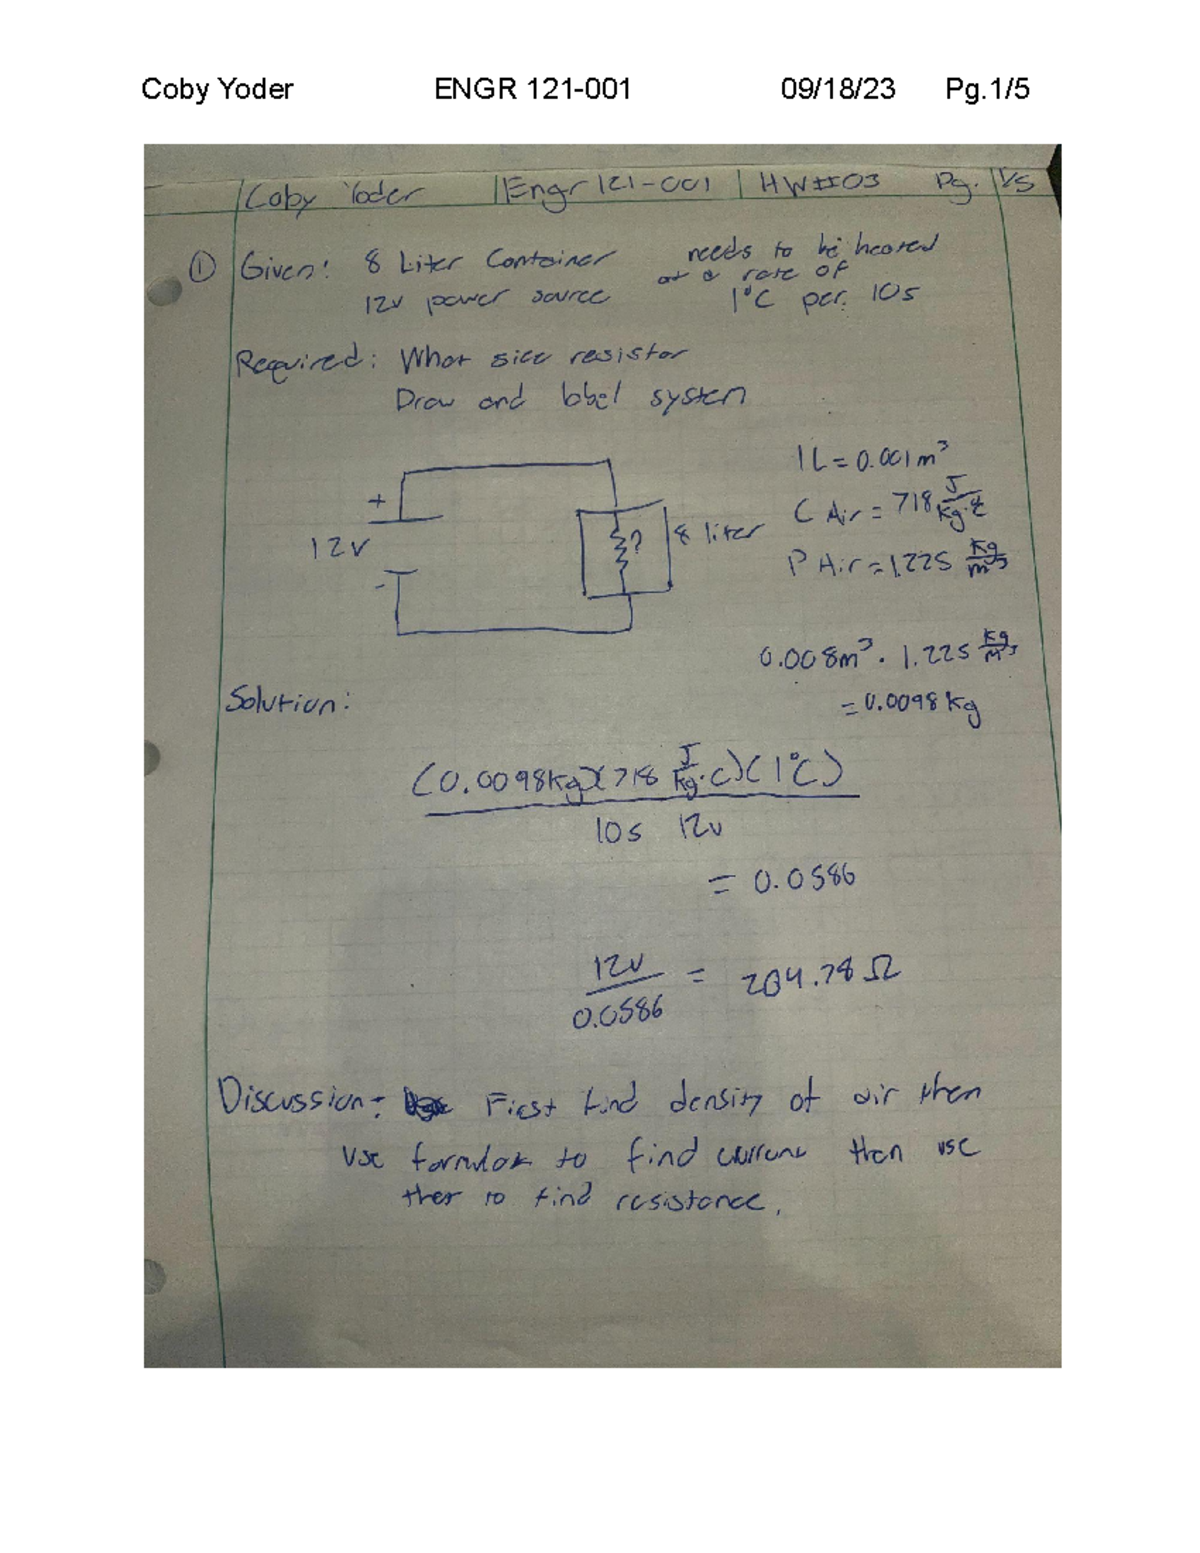 Coby Yoder ENGR 121-001 09/18/23 Pg.1/5
Coby Yoder Engr 121-001 HW#03 Pg. 1/5
① Given: 8 Liter Container needs to be heated
at a rate of
12v power source 1°C per. 10s
Required: What size resistor
Draw and label system
1L = 0.001m³
+
C Air = 718 J/Kg·C
12v ? 8 liter
P Air = 1.225 Kg/m³
-
0.008m³ · 1.225 Kg/m³
Solution: = 0.0098 Kg
(0.0098Kg)(718 J/Kg·C)(1°C)
10s 12v
= 0.0586
12v/0.0586 = 204.78 Ω
Discussion: First find density of air then
use formula to find current then use
that to find resistance.